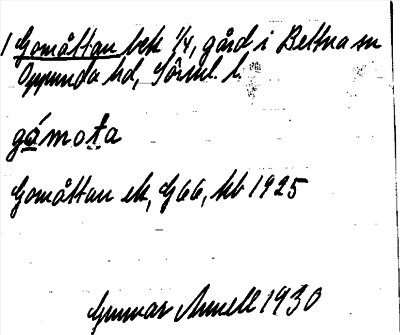 1 Gomåttan bek 1/4, gård i Bettna sn
Oppunda hd, Sörml. l.
gómota
Gomåttan ek, G66, kb 1925
Gunnar Arnell 1930